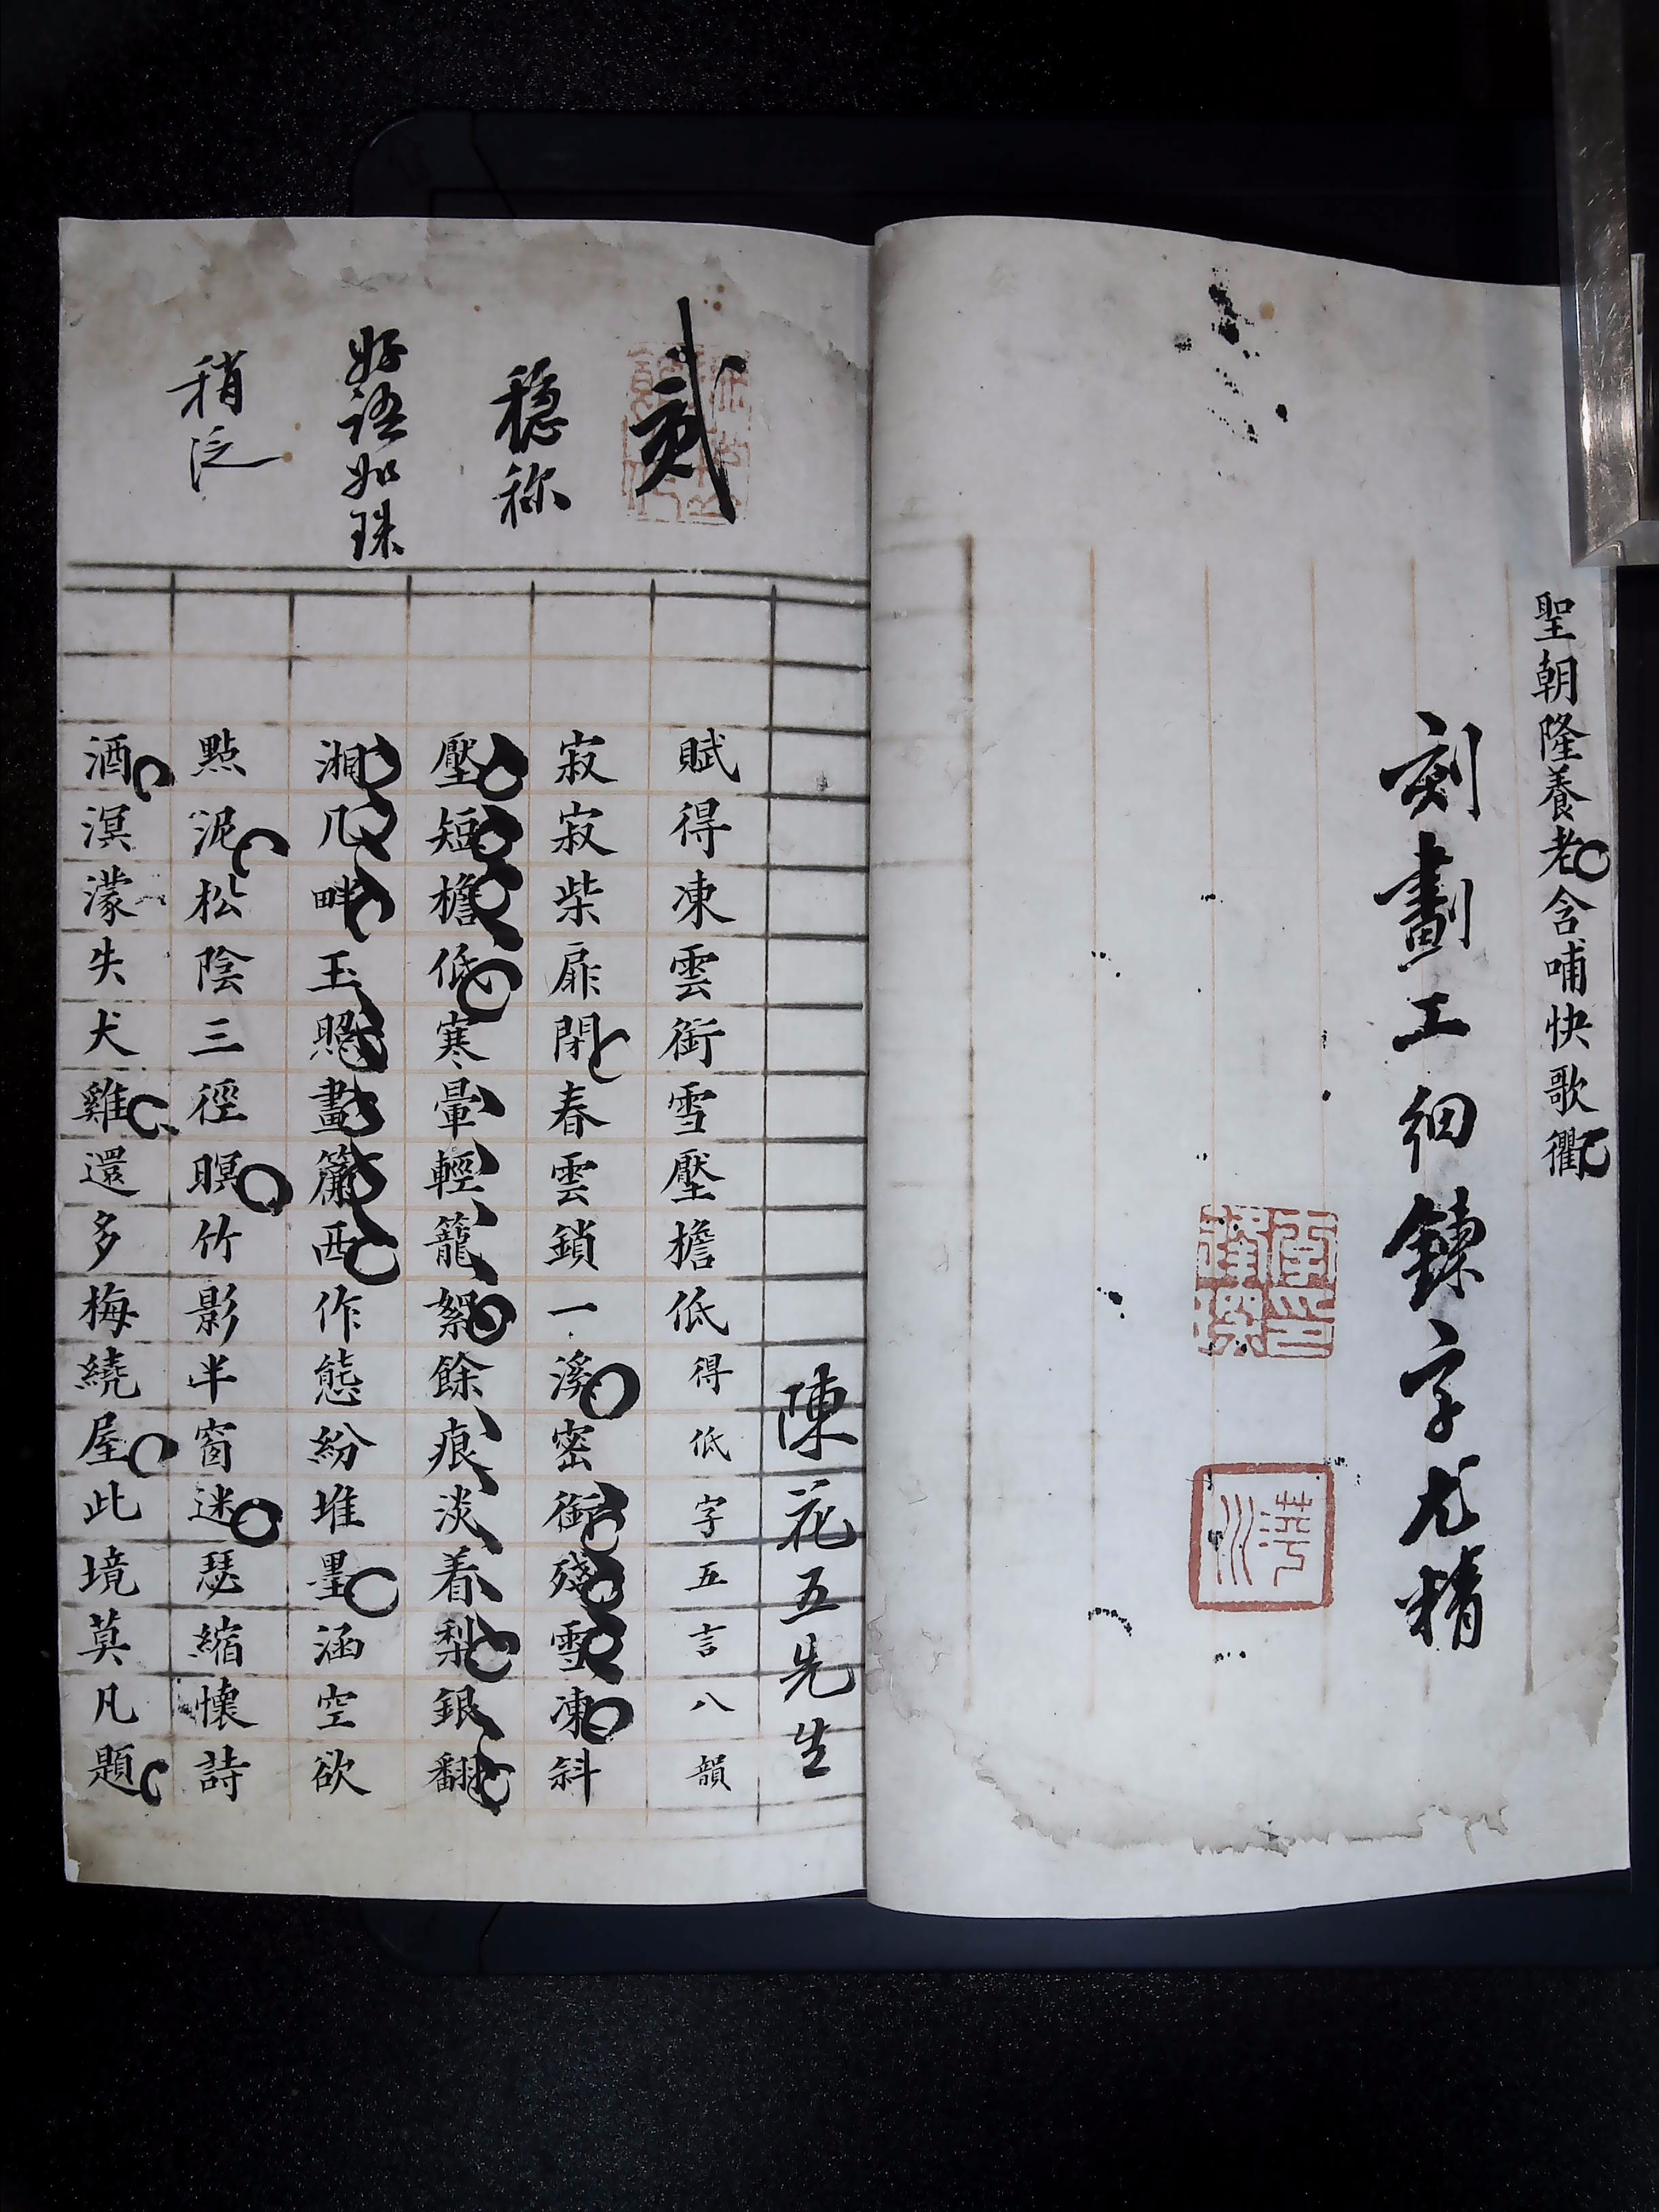 聖朝隆養老含哺快歌衢
刻畫工細鍊字尤精
陳花五先生
貳
穩称
好語如珠
稍泛
賦得凍雲銜雪壓檐低得低字五言八韻
寂寂柴扉閉春雲鎖一溪密銜殘雪凍斜
壓短檐低寒暈輕籠絮餘痕淡着梨銀翻
湘几畔玉照畫簾西作態紛堆墨涵空欲
點泥松陰三徑暝竹影半窗迷瑟縮懷詩
酒溟濛失犬雞還多梅繞屋此境莫凡題